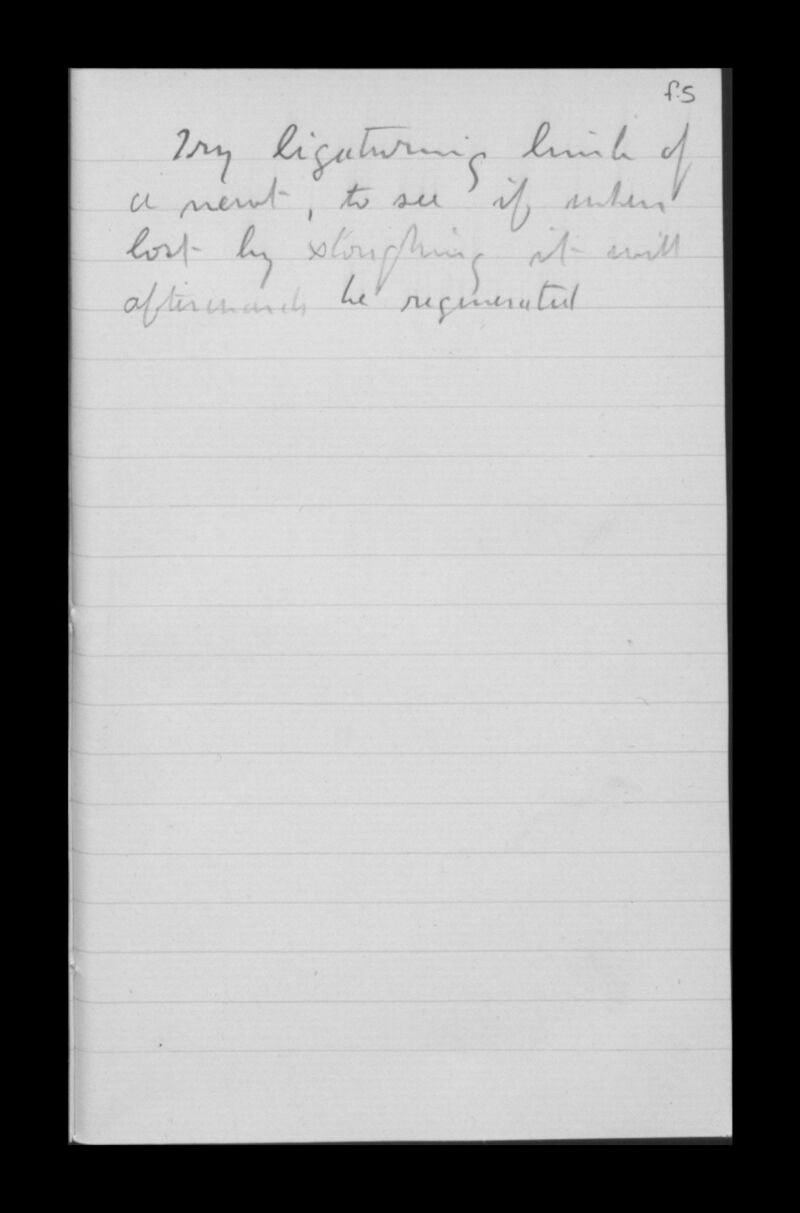 f.5
Try ligaturing limb of
a newt, to see if when
lost by sloughing it will
afterwards be regenerated